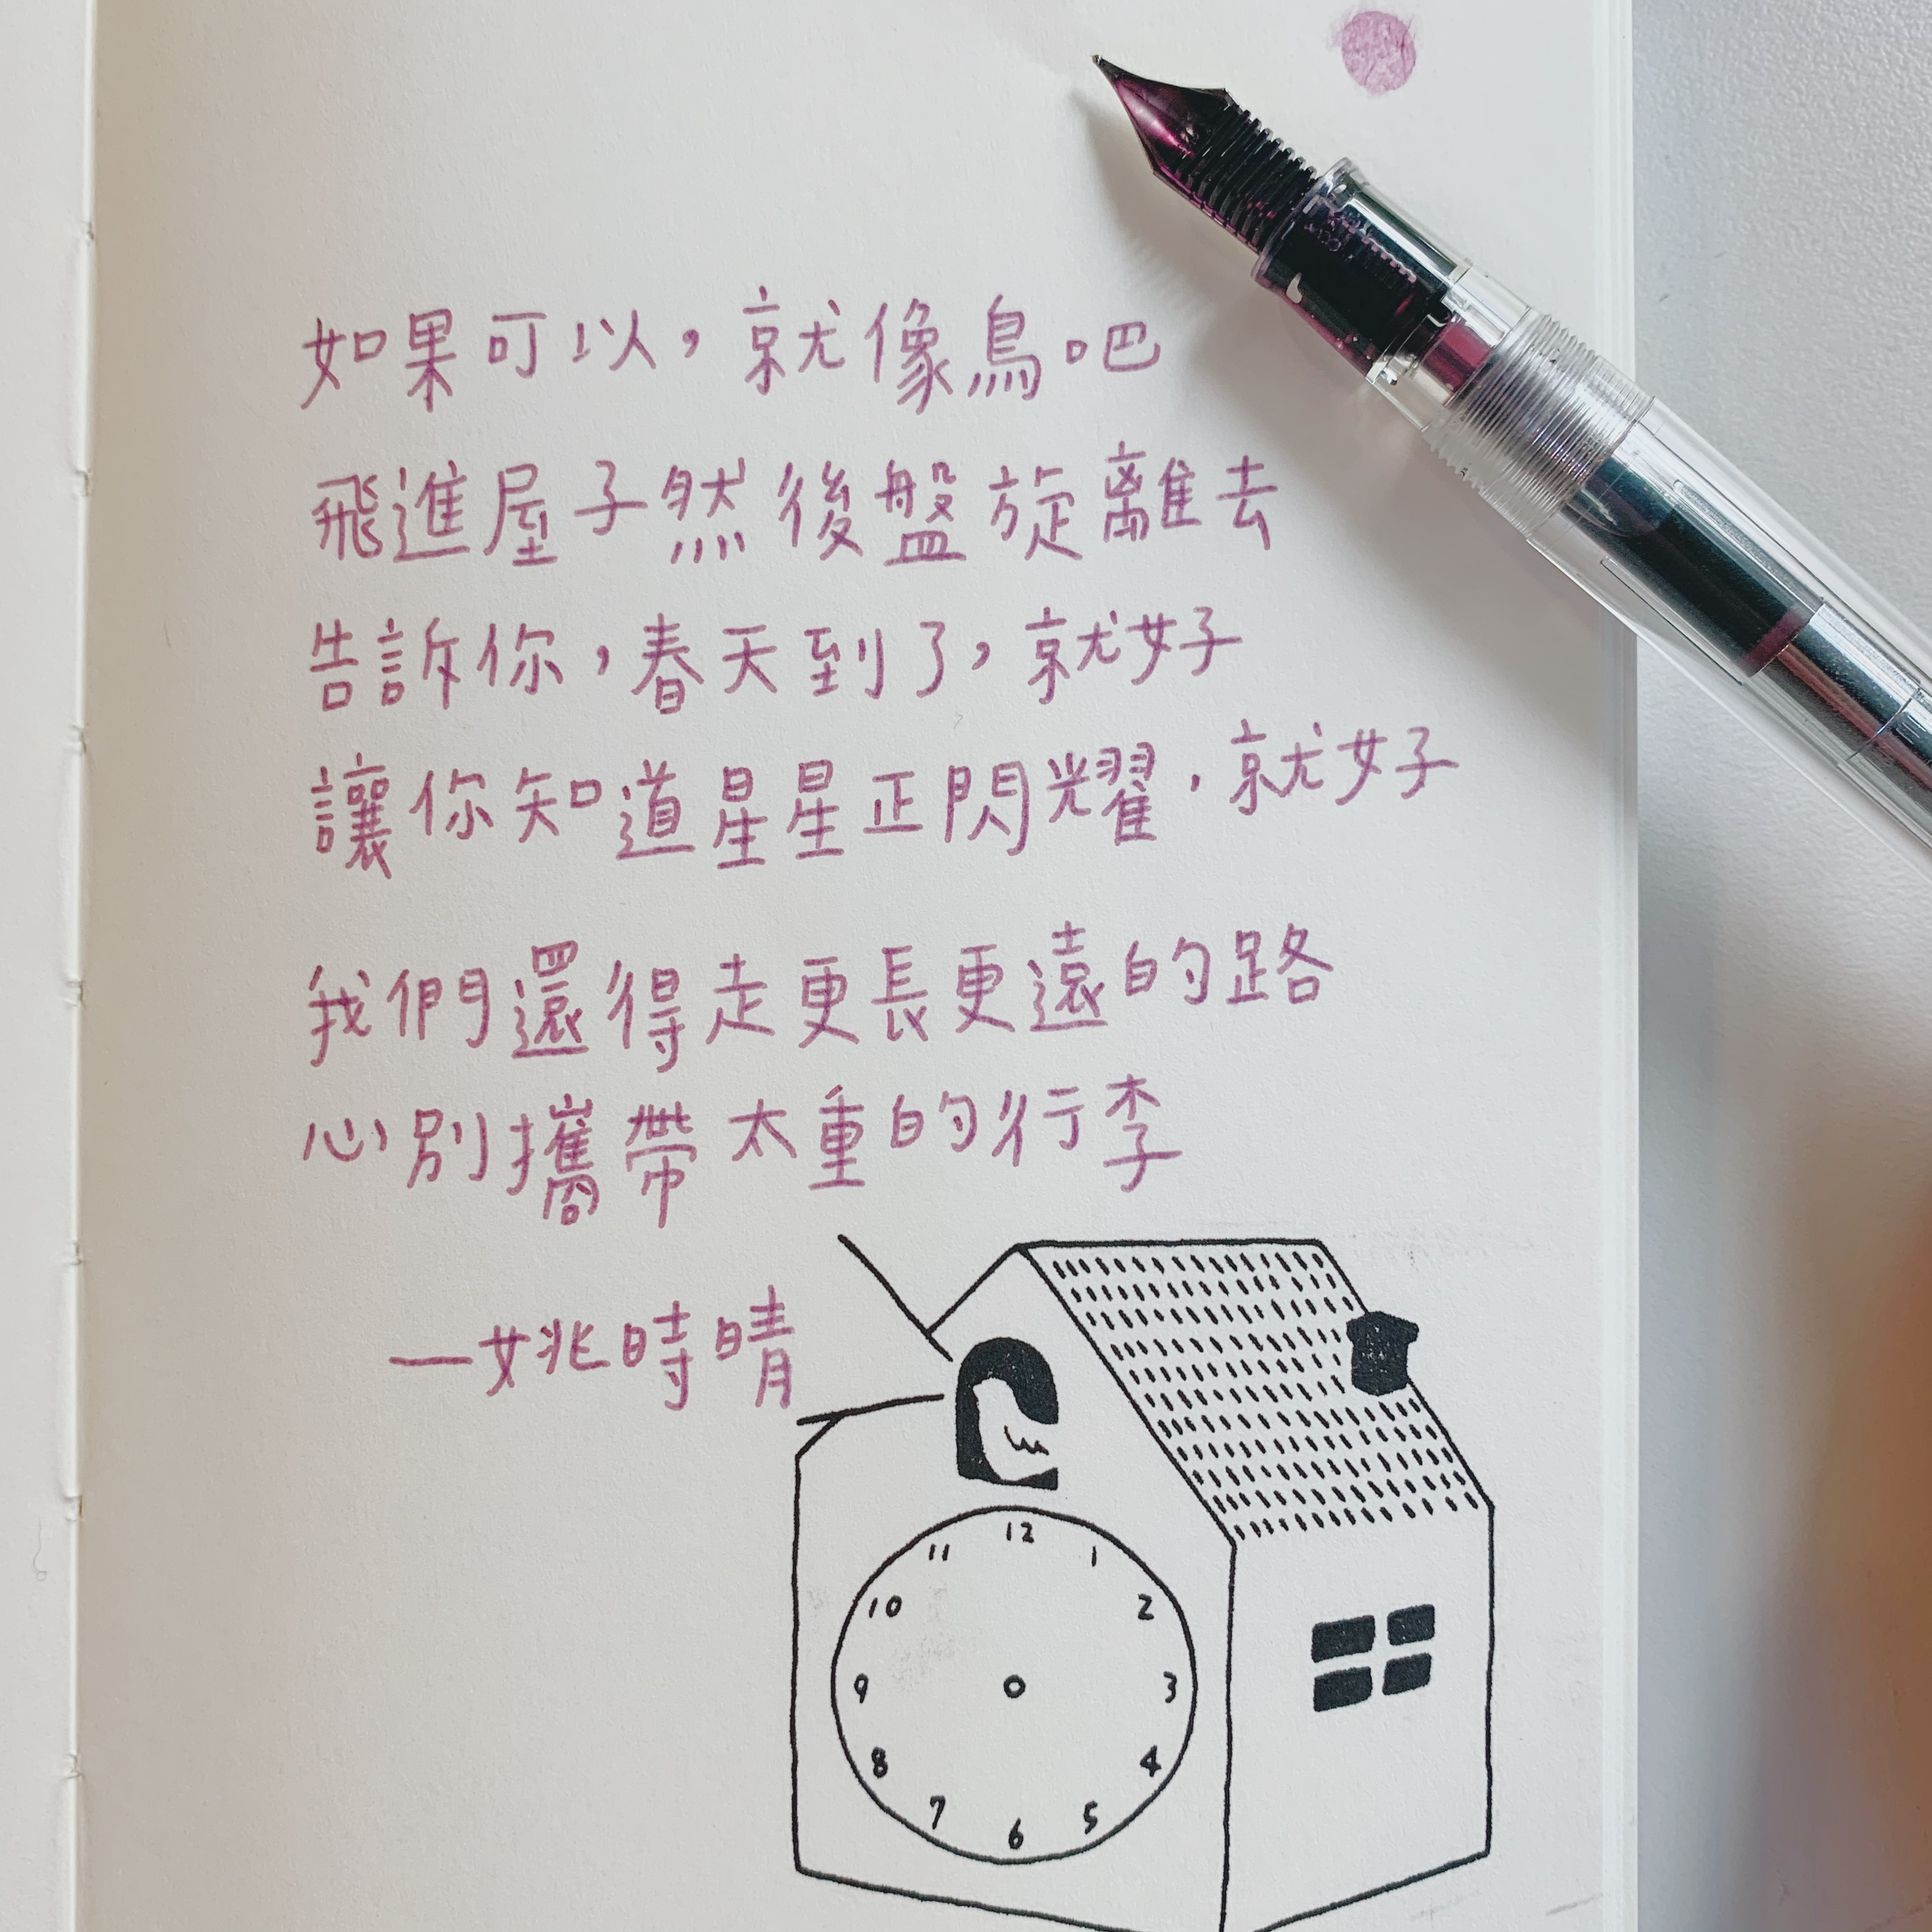 如果可以,就像鳥吧
飛進屋子然後盤旋離去
告訴你,春天到了,就好
讓你知道星星正閃耀,就好
我們還得走更長更遠的路
心別攜帶太重的行李
—姚時晴
12
11
1
10
2
9
3
8
4
7
5
6